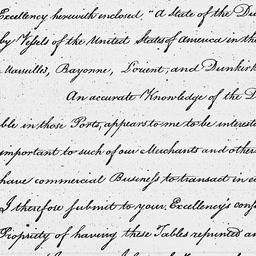 Excellency herewith enclosed. "A State of the Du
by Vessels of the United States of America in th
Marseilles, Bayonne, L'orient, and Dunkirk
An accurate Knowledge of the D
ble in those Ports, appears to me to be interest
important to such of our Merchants and other
have commercial Business to transact in
I therefore submit to your Excellency's cons
Propriety of having these Tables reprinted an